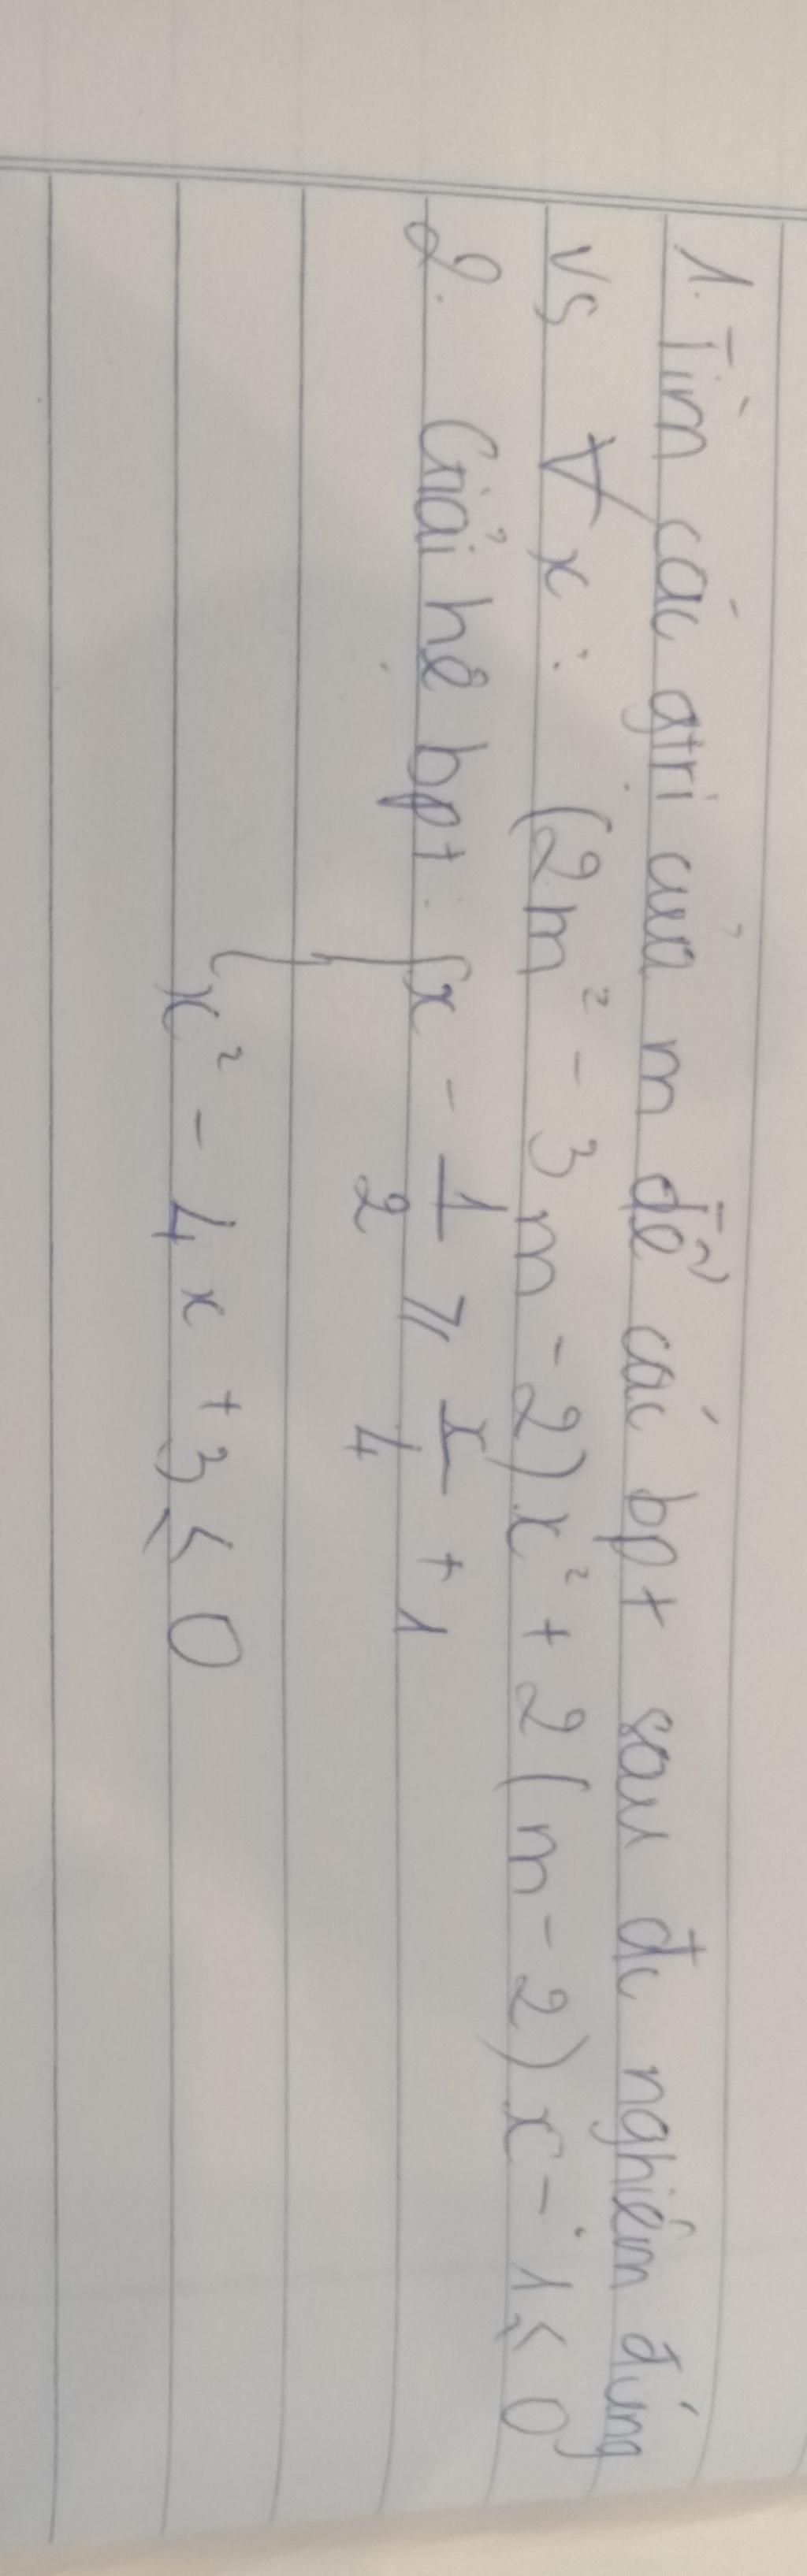 1. Tìm các gtrị của m để các bpt sau đc nghiệm đúng
vs ∀x: (2m² - 3m - 2)x² + 2(m - 2)x - 1 ≤ 0
2. Giải hệ bpt: { x - 1/2 ≥ x/4 + 1
x² - 4x + 3 ≤ 0